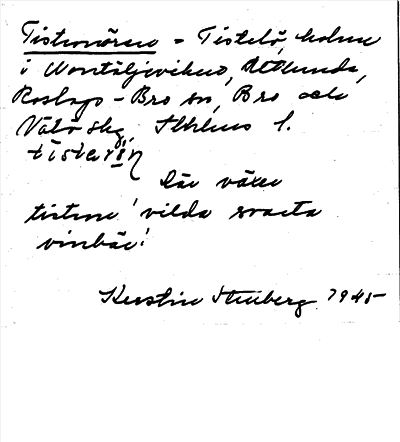 Tistronören = Tistelö, holme
i Norrtäljeviken, Utlunda,
Roslags-Bro sn, Bro och
Vätö skg, Sthlms l.
tistərö̱n
Där växer
tistron 'vilda svarta
vinbär'
Kerstin Stenberg 1945